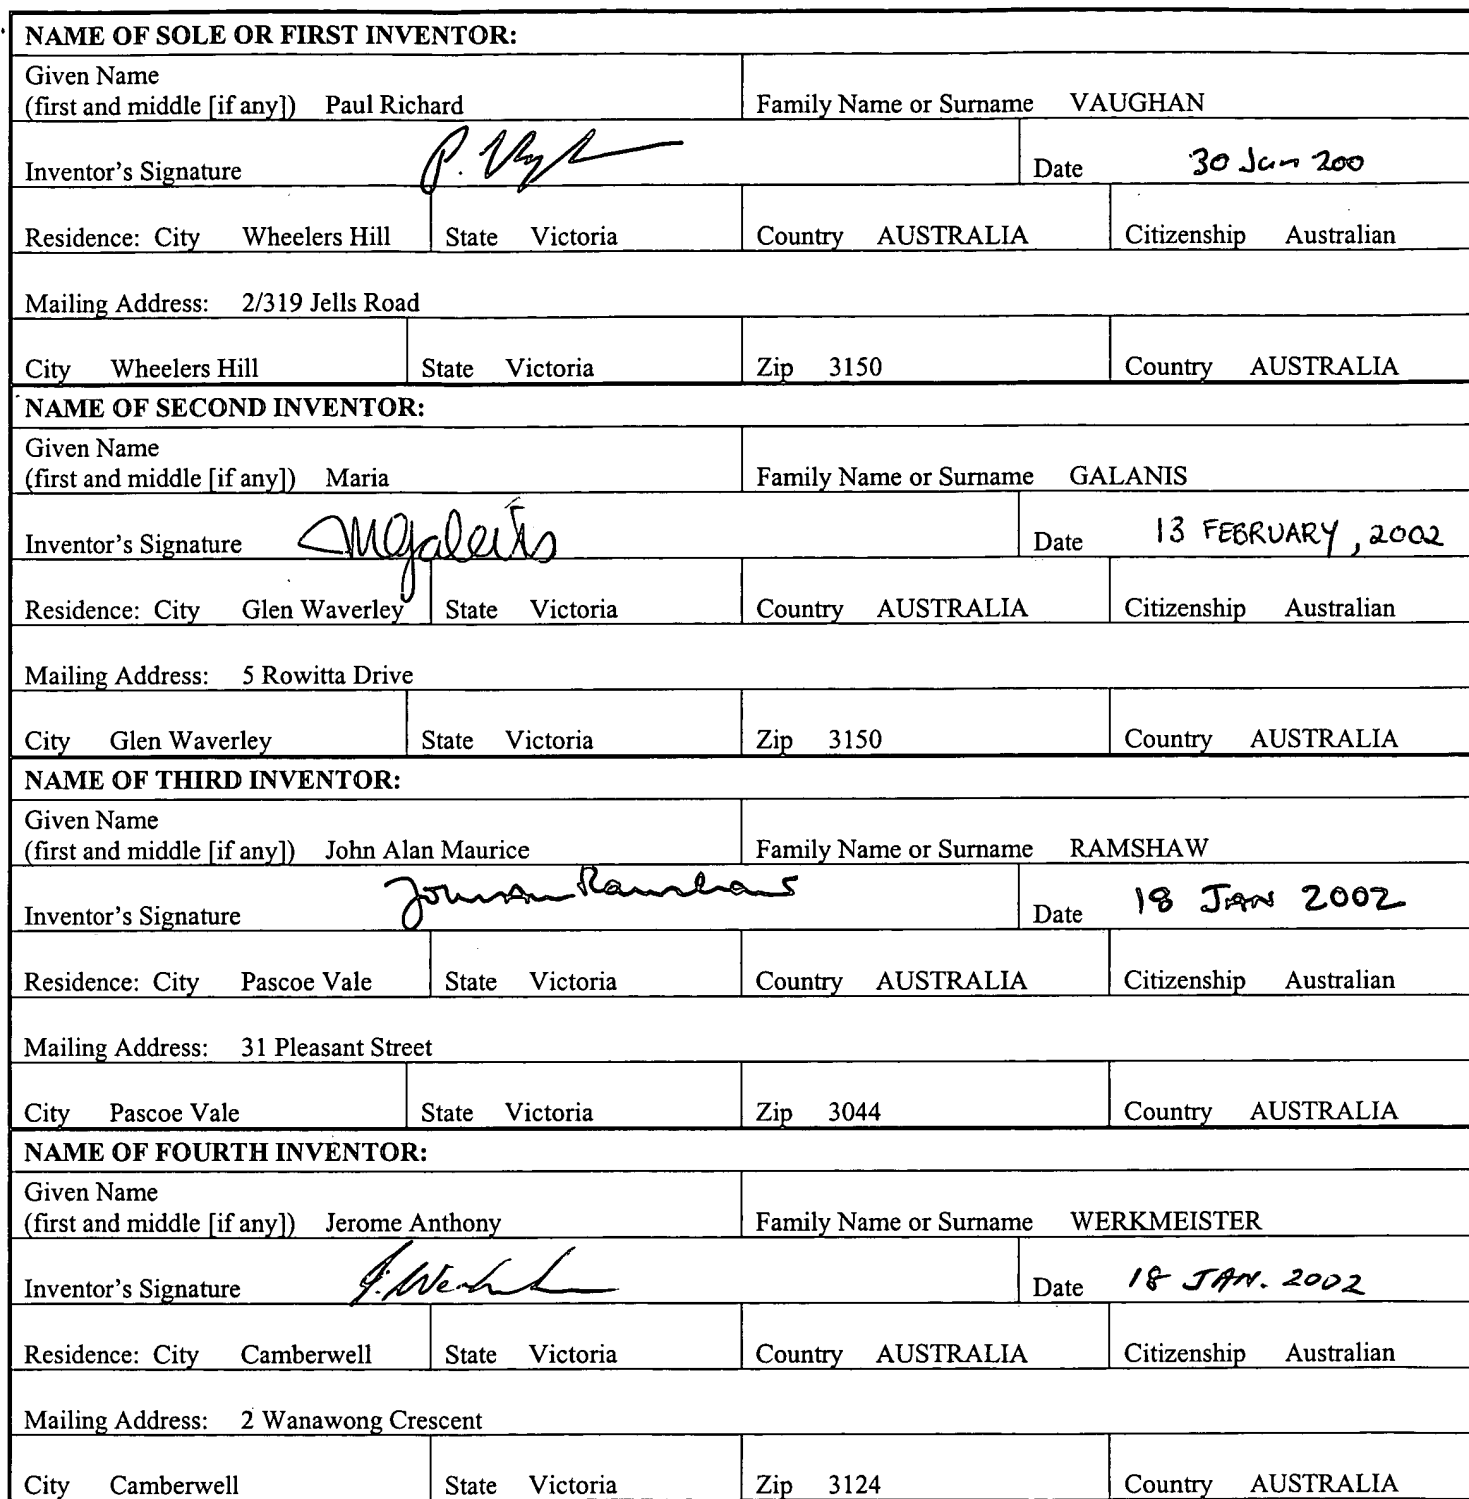 NAME OF SOLE OR FIRST INVENTOR:
Given Name
(first and middle [if any]) Paul Richard Family Name or Surname VAUGHAN
Inventor's Signature P. Date 30 Jan 200
Residence: City Wheelers Hill State Victoria Country AUSTRALIA Citizenship Australian
Mailing Address: 2/319 Jells Road
City Wheelers Hill State Victoria Zip 3150 Country AUSTRALIA
NAME OF SECOND INVENTOR:
Given Name
(first and middle [if any]) Maria Family Name or Surname GALANIS
Inventor's Signature Date 13 FEBRUARY, 2002
Residence: City Glen Waverley State Victoria Country AUSTRALIA Citizenship Australian
Mailing Address: 5 Rowitta Drive
City Glen Waverley State Victoria Zip 3150 Country AUSTRALIA
NAME OF THIRD INVENTOR:
Given Name
(first and middle [if any]) John Alan Maurice Family Name or Surname RAMSHAW
Inventor's Signature Ramshaw Date 18 JAN 2002
Residence: City Pascoe Vale State Victoria Country AUSTRALIA Citizenship Australian
Mailing Address: 31 Pleasant Street
City Pascoe Vale State Victoria Zip 3044 Country AUSTRALIA
NAME OF FOURTH INVENTOR:
Given Name
(first and middle [if any]) Jerome Anthony Family Name or Surname WERKMEISTER
Inventor's Signature Date 18 JAN. 2002
Residence: City Camberwell State Victoria Country AUSTRALIA Citizenship Australian
Mailing Address: 2 Wanawong Crescent
City Camberwell State Victoria Zip 3124 Country AUSTRALIA